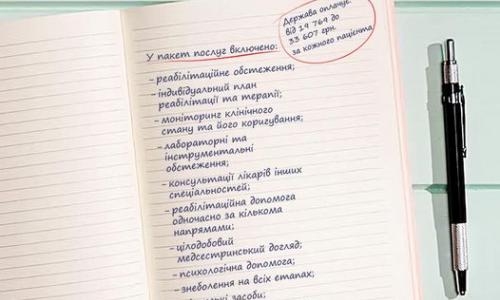 Держава оплачує:
від 19 769 до
33 607 грн.
за кожного пацієнта
У пакет послуг включено:
- реабілітаційне обстеження;
- індивідуальний план
реабілітації та терапії;
- моніторинг клінічного
стану та його коригування;
- лабораторні та
інструментальні
обстеження;
- консультації лікарів інших
спеціальностей;
- реабілітаційна допомога
одночасно за кількома
напрямами;
- цілодобовий
медсестринський догляд;
- психологічна допомога;
- знеболення на всіх етапах;
засоби;